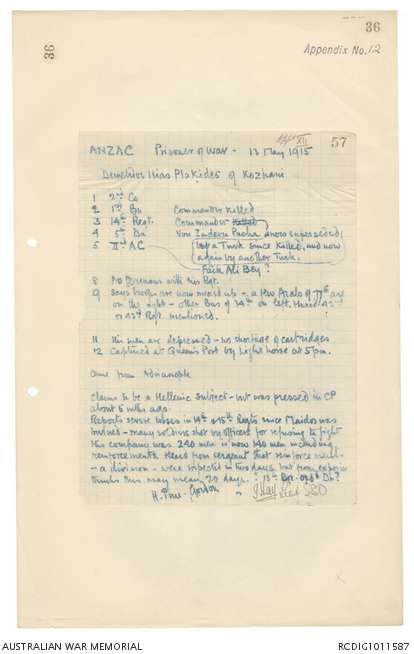 36
36
Appendix No. 12
App XII
57
ANZAC Prisoner of War - 13 May 1915
Demetrius Ilias Plakides of Kozhani
1 2nd Co
2 1st Bn Commander killed
3 14th Regt. Commander killed
4 5th Dn Von Pacha who is superseded
5 IInd AC by a Turk since killed, and now
again by another Turk.
Faik Ali Bey?
8 No Germans with his Rgt.
9 Says are now mixed up - a few Arabs of 77th are
on the right - other Bns of 14th on left.
or Regt. mentioned.
11 His men are depressed - no shortage of cartridges
12 Captured at Quinn's Post by Light horse at 5pm.
Came from Adrianople
Claims to be a Hellenic subject - but was pressed in CP
about 6 mths ago.
Reports severe losses in 14th & 15th Regts since Maidos was
burned - many soldiers shot by officers for refusing to fight
His company was 240 men is now 140 men including
reinforcements. Heard from sergeant that reinforcement
- a division - were expected in two days, but from
thinks this may mean 20 days.
H. Pirie-Gordon
AUSTRALIAN WAR MEMORIAL
RCDIG1011587